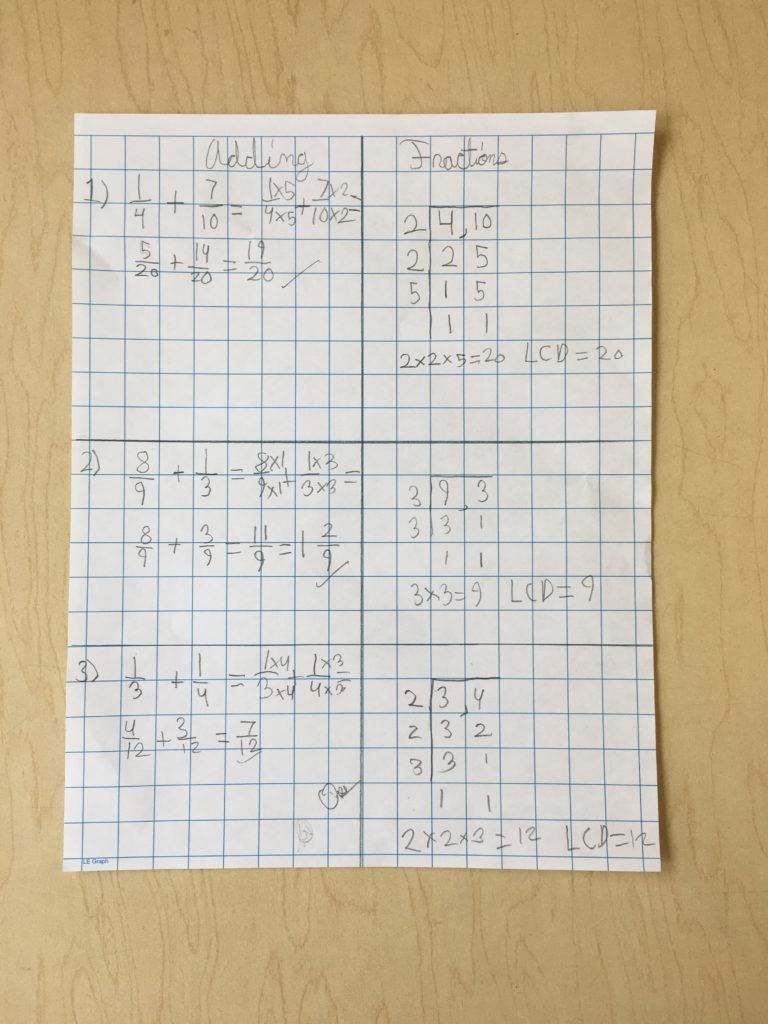 Adding Fractions
1) 1/4 + 7/10 = 1×5/4×5 + 7×2/10×2 =
5/20 + 14/20 = 19/20 ✓
2 | 4, 10
2 | 2 5
5 | 1 5
1 1
2×2×5=20 LCD = 20
2) 8/9 + 1/3 = 8×1/9×1 + 1×3/3×3 =
8/9 + 3/9 = 11/9 = 1 2/9 ✓
3 | 9, 3
3 | 3 1
1 1
3×3=9 LCD = 9
3) 1/3 + 1/4 = 1×4/3×4 + 1×3/4×3 =
4/12 + 3/12 = 7/12 ✓
2 | 3, 4
2 | 3 2
3 | 3 1
1 1
2×2×3=12 LCD=12
LE Graph